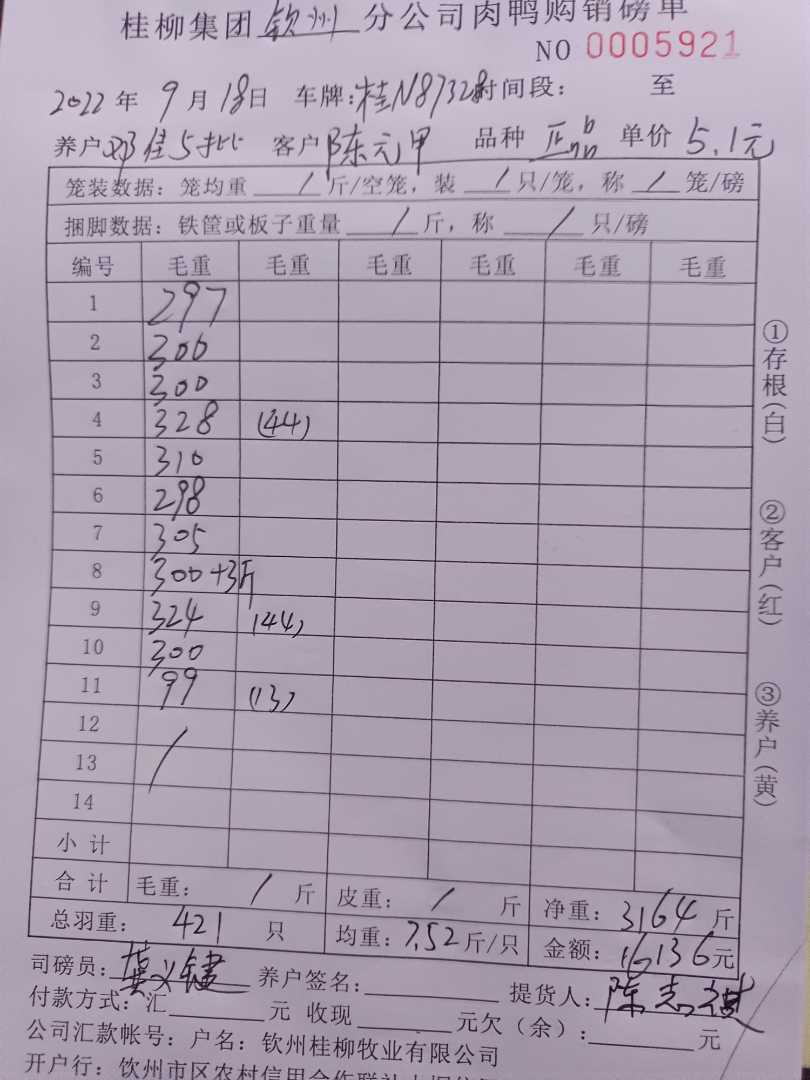 桂柳集团 钦州 分公司肉鸭购销磅单
NO 0005921
2022 年 9 月 18 日 车牌：桂N87328 时间段： 至
养户 邓佳5批 客户 陈元甲 品种 正品 单价 5.1元
笼装数据：笼均重 / 斤/空笼，装 / 只/笼，称 / 笼/磅
捆脚数据：铁筐或板子重量 / 斤，称 / 只/磅
编号 毛重 毛重 毛重 毛重 毛重 毛重
1 297
2 300
3 300
4 328 (44)
5 310
6 298
7 305
8 300+3斤
9 324 (44)
10 300
11 99 (13)
12
13 /
14
小计
合计 毛重： / 斤 皮重： / 斤 净重：3164 斤
总羽重： 421 只 均重：7.52 斤/只 金额：16136元
司磅员： 养户签名： 提货人：陈志祺
付款方式：汇 元 收现 元欠（余）： 元
公司汇款帐号：户名：钦州桂柳牧业有限公司
开户行：钦州市区农村信用合作联社
①存根（白）
②客户（红）
③养户（黄）